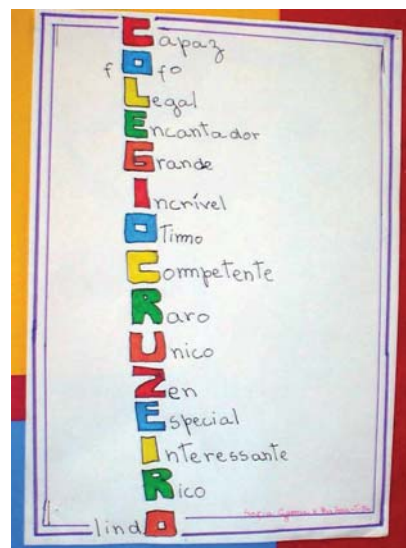 Capaz
fofo
Legal
Encantador
Grande
Incrível
Otimo
Competente
Raro
Unico
Zen
Especial
Interessante
Rico
lindO